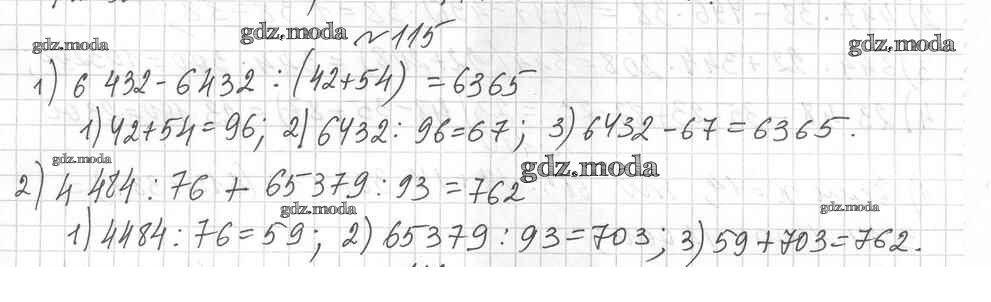 gdz.moda gdz.moda № 115 gdz.moda
1) 6 432 - 6432 : (42+54) = 6365
1) 42+54 = 96; 2) 6432 : 96 = 67; 3) 6432 - 67 = 6365.
gdz.moda gdz.moda
2) 4 484 : 76 + 65379 : 93 = 762
gdz.moda gdz.moda
1) 4484 : 76 = 59; 2) 65379 : 93 = 703; 3) 59 + 703 = 762.